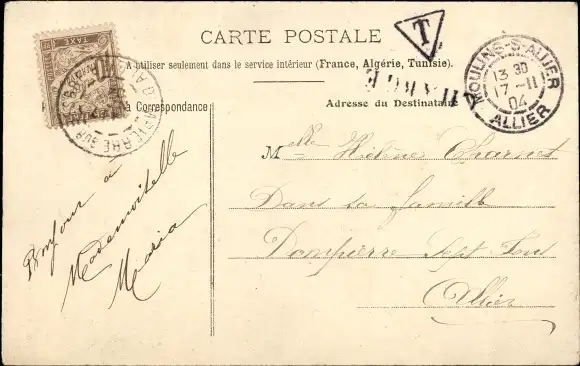 CARTE POSTALE
A utiliser seulement dans le service intérieur (France, Algérie, Tunisie).
la Correspondance
Adresse du Destinataire
T
MOULINS-S-ALLIER
13 30
17 - 11
04
ALLIER
TAXE
PIERRE SUR
Mlle Hélène Charnet
Dans sa famille
Dompierre Sept Fons
Allier
Bonjour à
Mademoiselle
Maria